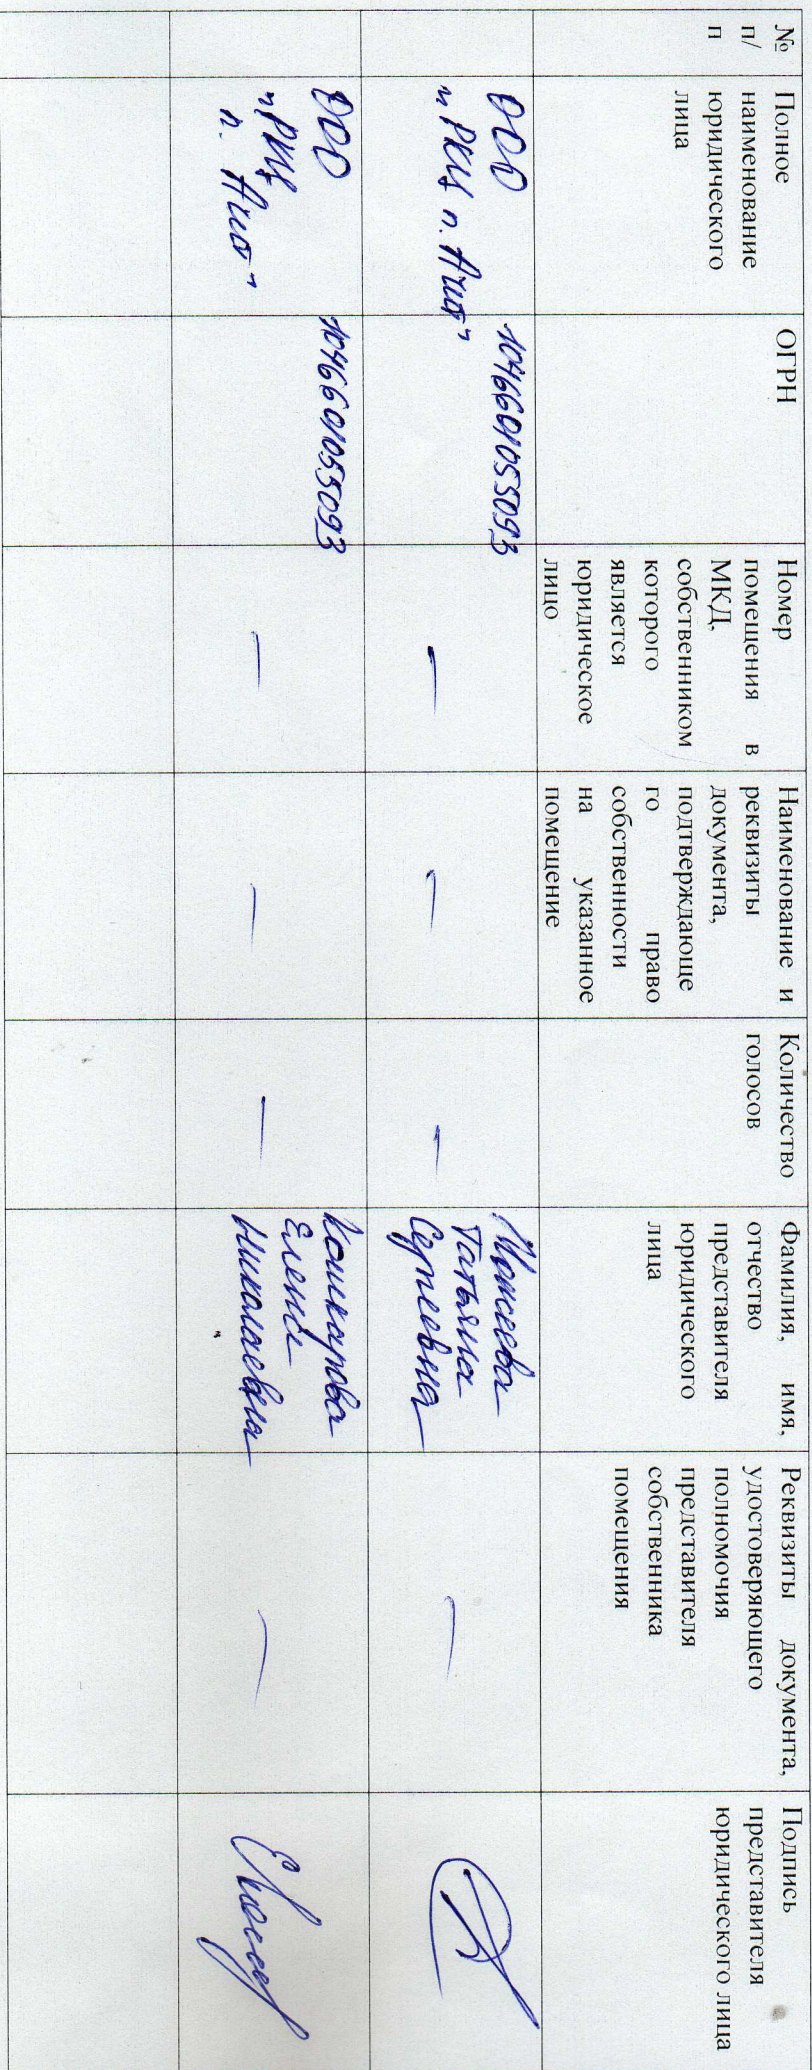 №
п/
п
Полное
наименование
юридического
лица
ОГРН
Номер
помещения в
МКД,
собственником
которого
является
юридическое
лицо
Наименование и
реквизиты
документа,
подтверждающе
го право
собственности
на указанное
помещение
Количество
голосов
Фамилия, имя,
отчество
представителя
юридического
лица
Реквизиты документа,
удостоверяющего
полномочия
представителя
собственника
помещения
Подпись
представителя
юридического лица
ООО
"РКЦ п. Ачит"
1046601055093
—
—
—
Моисеева
Татьяна
Сергеевна
—
ООО
"РКЦ
п. Ачит"
1046601055093
—
—
—
Кошкарова
Елена
Николаевна
—